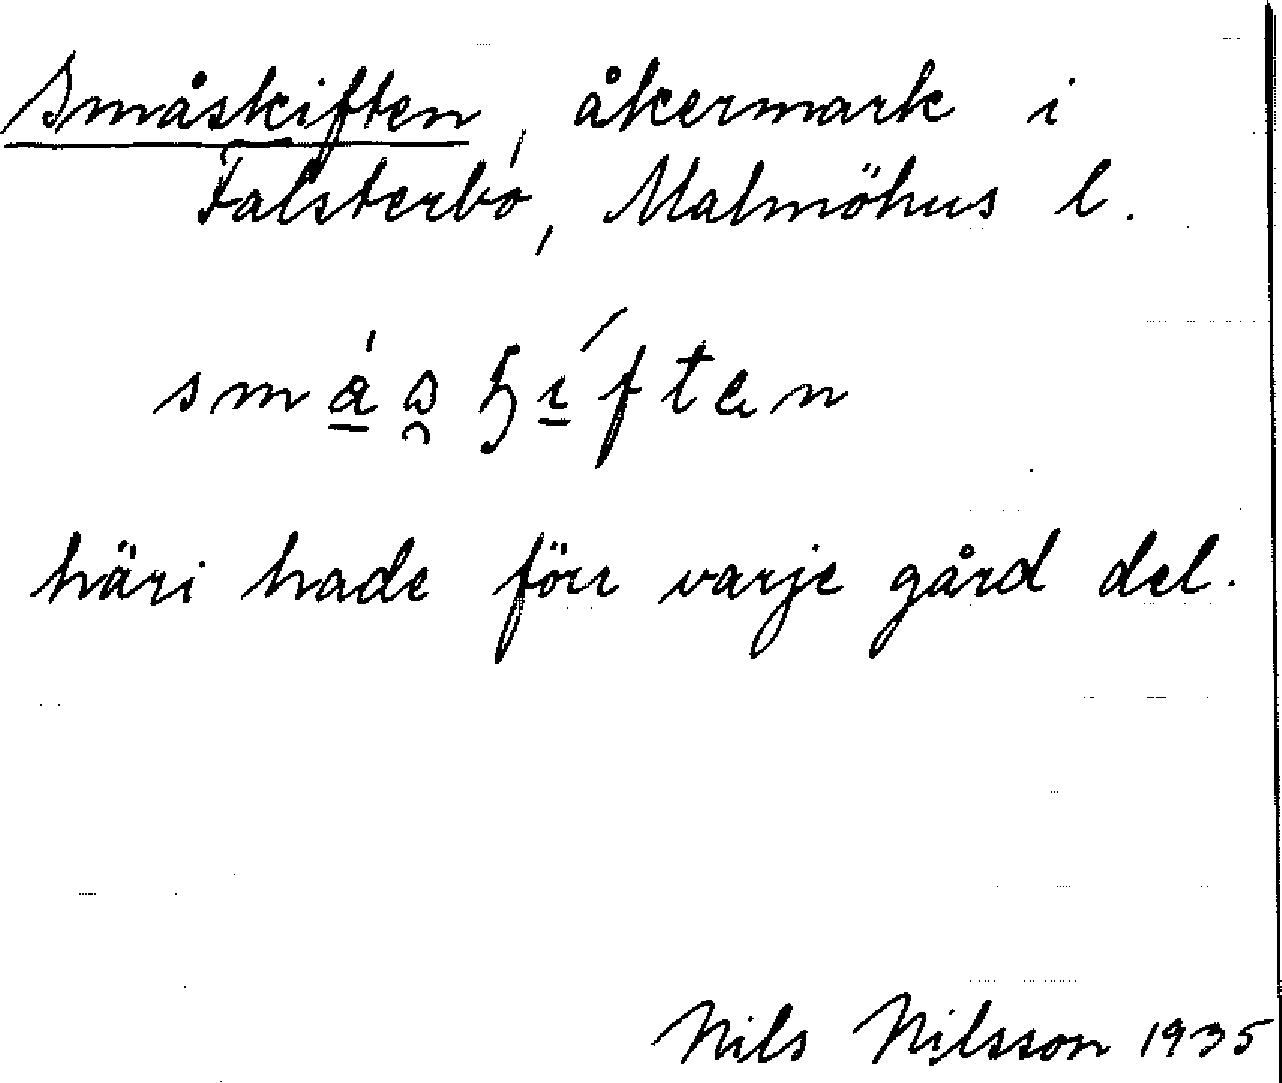 Småskiften, åkermark i
Falsterbo, Malmöhus l.
häri hade förr varje gård del.
Nils Nilsson 1935